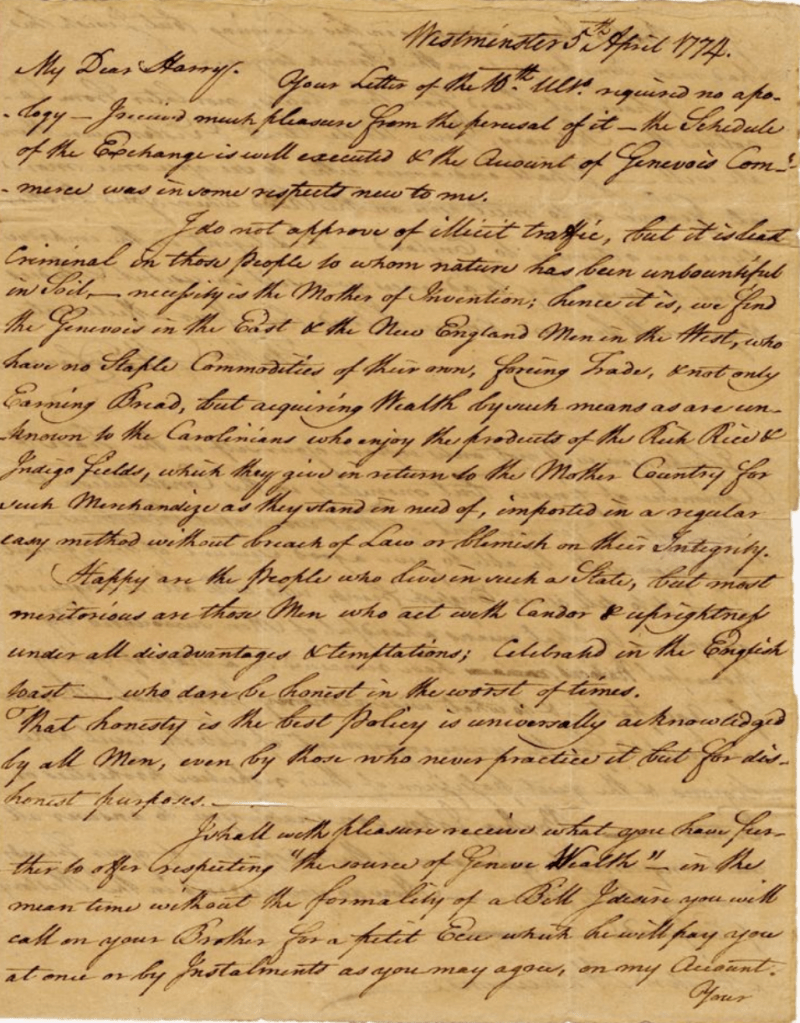 Westminster 5th April 1774.
My Dear Harry. Your Letter of the 10th. Ulto. required no apo-
-logy — I received much pleasure from the perusal of it — the Schedule
of the Exchange is well executed & the Account of Genevois Com-
-merce was in some respects new to me.
I do not approve of illicit traffic, but it is least
Criminal in those People to whom nature has been unbountiful
in Soil, — necessity is the Mother of Invention; hence it is, we find
the Genevois in the East & the New England Men in the West, who
have no Staple Commodities of their own, forcing Trade, & not only
Earning Bread, but acquiring Wealth by such means as are un-
-known to the Carolinians who enjoy the products of the Rich Rice &
Indigo fields, which they give in return to the Mother Country for
such Merchandize as they stand in need of, imported in a regular
easy method without breach of Law or blemish on their Integrity.
Happy are the People who live in such a State, but most
meritorious are those Men who act with Candor & uprightness
under all disadvantages & temptations; Celebrated in the English
toast — who dare be honest in the worst of times.
That honesty is the best Policy is universally acknowledged
by all Men, even by those who never practice it but for dis-
honest purposes. —
I shall with pleasure receive what you have fur-
ther to offer respecting "the source of Geneve Wealth" — in the
mean time without the formality of a Bill I desire you will
call on your Brother for a petit Ecu which he will pay you
at once or by Instalments as you may agree, on my Account.
Your